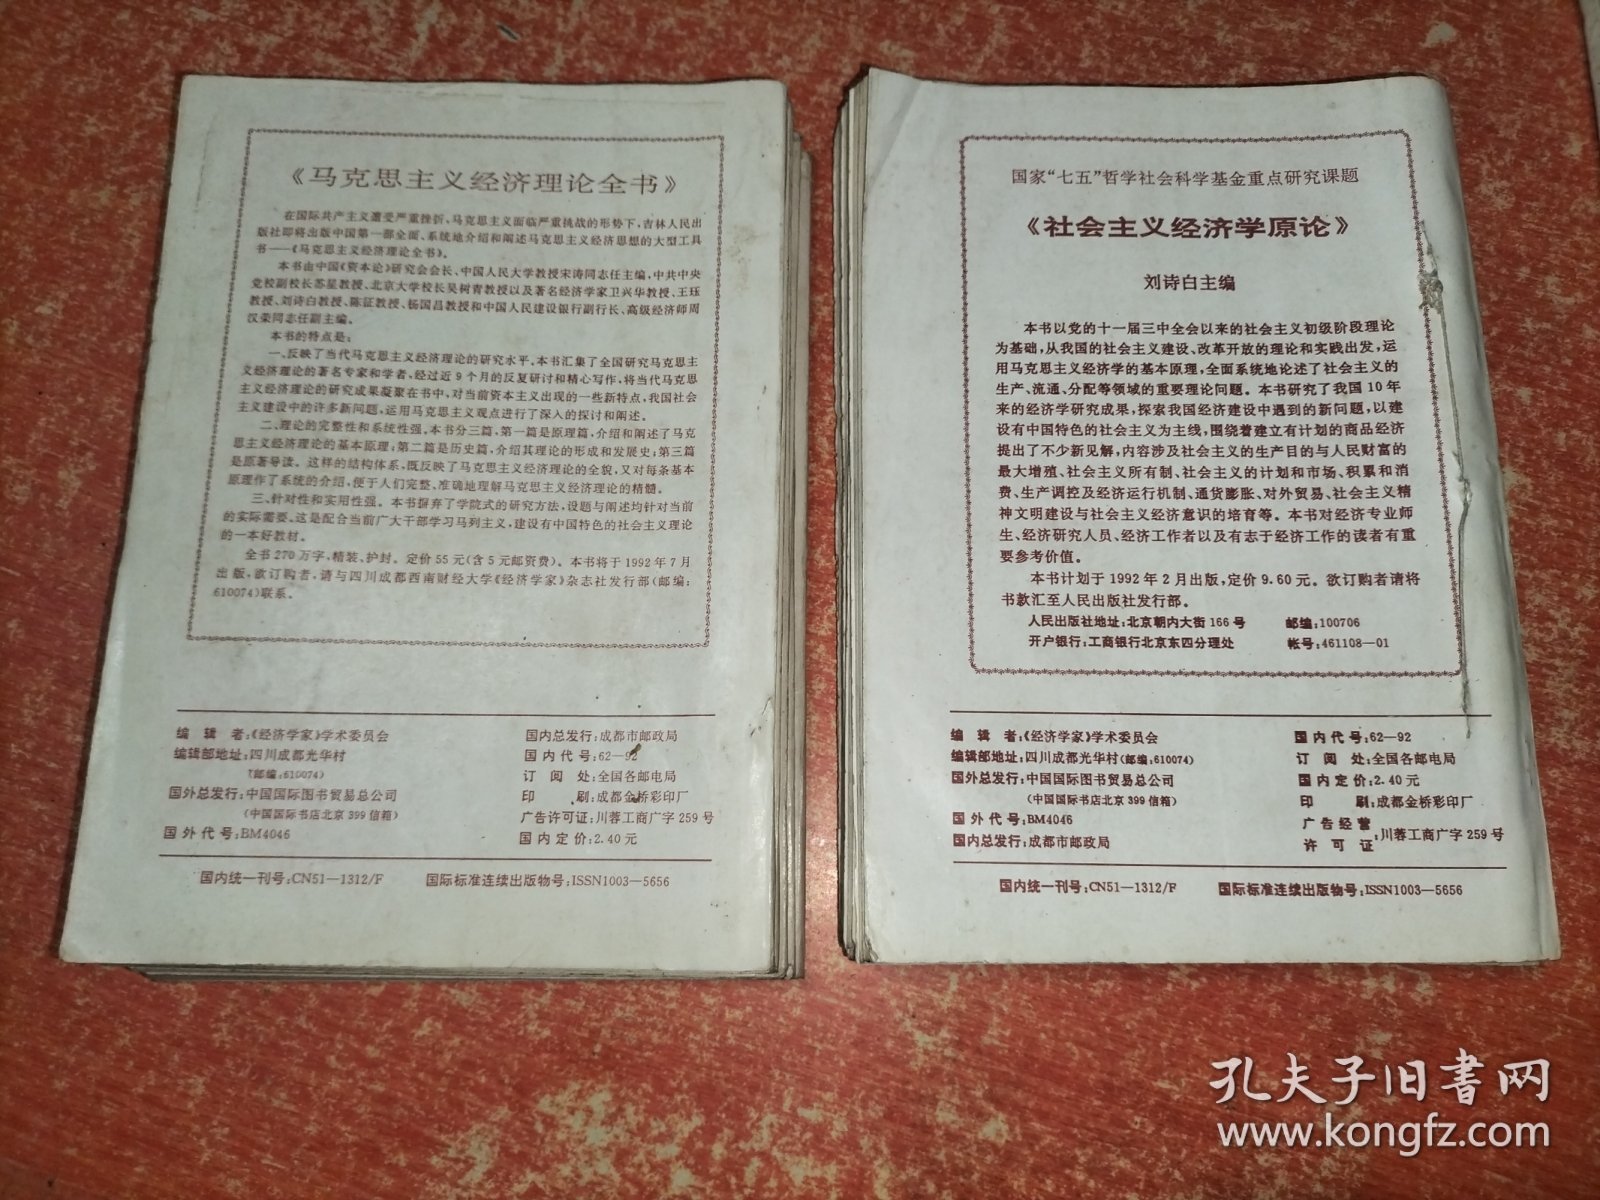 《马克思主义经济理论全书》
在国际共产主义遭受严重挫折、马克思主义面临严重挑战的形势下，吉林人民出
版社即将出版中国第一部全面、系统地介绍和阐述马克思主义经济思想的大型工具
书——《马克思主义经济理论全书》。
本书由中国《资本论》研究会会长、中国人民大学教授宋涛同志任主编，中共中央
党校副校长苏星教授、北京大学校长吴树青教授以及著名经济学家卫兴华教授、王珏
教授、刘诗白教授、陈征教授、杨国昌教授和中国人民建设银行副行长、高级经济师周
汉荣同志任副主编。
本书的特点是：
一、反映了当代马克思主义经济理论的研究水平。本书汇集了全国研究马克思主
义经济理论的著名专家和学者，经过近9个月的反复研讨和精心写作，将当代马克思
主义经济理论的研究成果凝聚在书中，对当前资本主义出现的一些新特点，我国社会
主义建设中的许多新问题，运用马克思主义观点进行了深入的探讨和阐述。
二、理论的完整性和系统性强。本书分三篇，第一篇是原理篇，介绍和阐述了马克
思主义经济理论的基本原理；第二篇是历史篇，介绍其理论的形成和发展史；第三篇
是原著导读。这样的结构体系，既反映了马克思主义经济理论的全貌，又对每条基本
原理作了系统的介绍，便于人们完整、准确地理解马克思主义经济理论的精髓。
三、针对性和实用性强。本书摒弃了学院式的研究方法，设题与阐述均针对当前
的实际需要。这是配合当前广大干部学习马列主义，建设有中国特色的社会主义理论
的一本好教材。
全书270万字，精装、护封。定价55元（含5元邮资费）。本书将于1992年7月
出版，欲订购者，请与四川成都西南财经大学《经济学家》杂志社发行部（邮编：
610074）联系。
编辑者：《经济学家》学术委员会
编辑部地址：四川成都光华村
（邮编：610074）
国外总发行：中国国际图书贸易总公司
（中国国际书店北京399信箱）
国外代号：BM4046
国内总发行：成都市邮政局
国内代号：62—92
订阅处：全国各邮电局
印刷：成都金桥彩印厂
广告许可证：川蓉工商广字259号
国内定价：2.40元
国内统一刊号：CN51—1312/F 国际标准连续出版物号：ISSN1003—5656
国家“七五”哲学社会科学基金重点研究课题
《社会主义经济学原论》
刘诗白主编
本书以党的十一届三中全会以来的社会主义初级阶段理论
为基础，从我国的社会主义建设、改革开放的理论和实践出发，运
用马克思主义经济学的基本原理，全面系统地论述了社会主义的
生产、流通、分配等领域的重要理论问题。本书研究了我国10年
来的经济学研究成果，探索我国经济建设中遇到的新问题，以建
设有中国特色的社会主义为主线，围绕着建立有计划的商品经济
提出了不少新见解，内容涉及社会主义的生产目的与人民财富的
最大增殖、社会主义所有制、社会主义的计划和市场、积累和消
费、生产调控及经济运行机制、通货膨胀、对外贸易、社会主义精
神文明建设与社会主义经济意识的培育等。本书对经济专业师
生、经济研究人员、经济工作者以及有志于经济工作的读者有重
要参考价值。
本书计划于1992年2月出版，定价9.60元。欲订购者请将
书款汇至人民出版社发行部。
人民出版社地址：北京朝内大街166号 邮编：100706
开户银行：工商银行北京东四分理处 帐号：461108—01
编辑者：《经济学家》学术委员会
编辑部地址：四川成都光华村（邮编：610074）
国外总发行：中国国际图书贸易总公司
（中国国际书店北京399信箱）
国外代号：BM4046
国内总发行：成都市邮政局
国内代号：62—92
订阅处：全国各邮电局
国内定价：2.40元
印刷：成都金桥彩印厂
广告经营
许可证：川蓉工商广字259号
国内统一刊号：CN51—1312/F 国际标准连续出版物号：ISSN1003—5656
孔夫子旧书网
www.kongfz.com